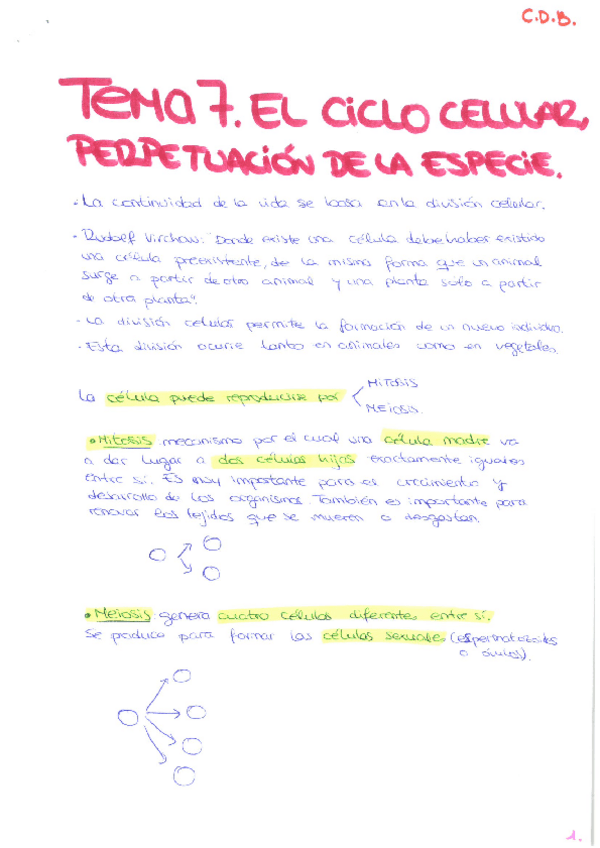 C.D.B.
TEMA 7. EL CICLO CELULAR,
PERPETUACIÓN DE LA ESPECIE.
· La continuidad de la vida se basa en la división celular.
· Rudolf Virchow: "Donde existe una célula debe haber existido
una célula preexistente, de la misma forma que un animal
surge a partir de otro animal y una planta solo a partir
de otra planta".
· La división celular permite la formación de un nuevo individuo.
· Esta división ocurre tanto en animales como en vegetales.
La célula puede reproducirse por
MITOSIS
MEIOSIS.
• Mitosis: mecanismo por el cual una célula madre va
a dar lugar a dos células hijas exactamente iguales
entre sí. Es muy importante para el crecimiento y
desarrollo de los organismos. También es importante para
renovar los tejidos que se mueren o desgastan.
• Meiosis: genera cuatro células diferentes entre sí.
Se produce para formar las células sexuales (espermatozoides
o óvulos).
1.